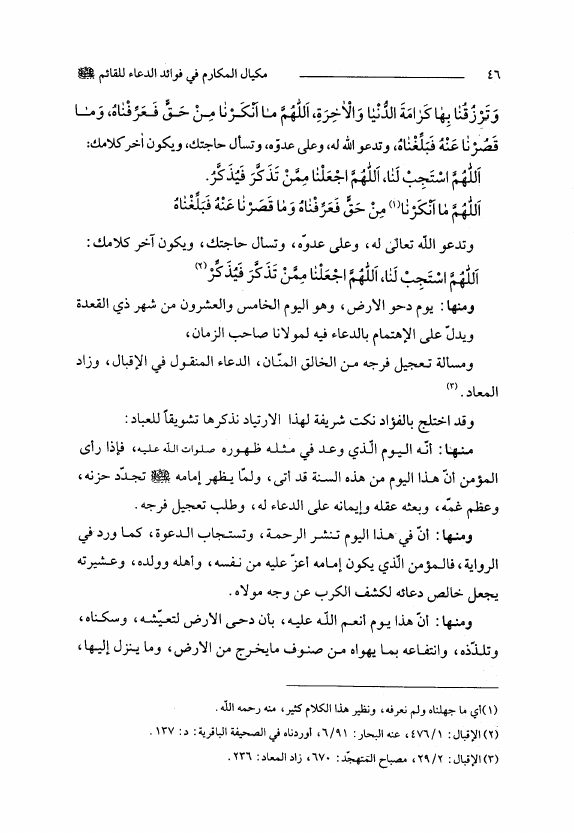 ٤٦ مكيال المكارم في فوائد الدعاء للقائم ﷺ
وَتَرْزُقُنا بِها كَرامَةَ الدُّنْيا وَالْاخِرَةِ، اَللّٰهُمَّ ما اَنْكَرْنا مِنْ حَقٍّ فَعَرِّفْناهُ، وَما
قَصُرْنا عَنْهُ فَبَلِّغْناهُ، وتدعو الله له، وعلى عدوّه، وتسأل حاجتك، ويكون آخر كلامك:
اَللّٰهُمَّ اسْتَجِبْ لَنا، اَللّٰهُمَّ اجْعَلْنا مِمَّنْ تَذَكَّرَ فَيُذَكَّرُ.
اَللّٰهُمَّ مٰا اَنْكَرْنا(١) مِنْ حَقٍّ فَعَرِّفْناهُ وَمٰا قَصَرْنا عَنْهُ فَبَلِّغْناهُ
وتدعو اللّه تعالىٰ له، وعلى عدوّه، وتسأل حاجتك، ويكون آخر كلامك:
اَللّٰهُمَّ اسْتَجِبْ لَنا، اَللّٰهُمَّ اجْعَلْنا مِمَّنْ تَذَكَّرَ فَيُذَكِّرُ(٢)
ومنها: يوم دحو الارض، وهو اليوم الخامس والعشرون من شهر ذي القعدة
ويدلّ على الإهتمام بالدعاء فيه لمولانا صاحب الزمان،
ومسالة تعجيل فرجه من الخالق المنّان، الدعاء المنقول في الإقبال، وزاد
المعاد.(٣)
وقد اختلج بالفؤاد نكت شريفة لهذا الارتياد نذكرها تشويقاً للعباد:
منها: أنّه اليوم الّذي وعد في مثله ظهوره صلوات اللّه عليه، فإذا رأى
المؤمن أنّ هذا اليوم من هذه السنة قد أتى، ولمّا يظهر إمامه ﷺ تجدّد حزنه،
وعظم غمّه، وبعثه عقله وإيمانه على الدعاء له، وطلب تعجيل فرجه.
ومنها: أنّ في هذا اليوم تنشر الرحمة، وتستجاب الدعوة، كما ورد في
الرواية، فالمؤمن الّذي يكون إمامه أعزّ عليه من نفسه، وأهله وولده، وعشيرته
يجعل خالص دعائه لكشف الكرب عن وجه مولاه.
ومنها: أنّ هذا يوم أنعم اللّه عليه، بأن دحى الارض لتعيّشه، وسكناه،
وتلذّذه، وانتفاعه بما يهواه من صنوف مايخرج من الارض، وما ينزل إليها،
(١) أي ما جهلناه ولم نعرفه، ونظير هذا الكلام كثير، منه رحمه اللّه.
(٢) الإقبال: ٤٧٦/١، عنه البحار: ٦/٩١، أوردناه في الصحيفة الباقرية: د: ١٣٧.
(٣) الإقبال: ٢٩/٢، مصباح المتهجّد: ٦٧٠، زاد المعاد: ٢٣٦.